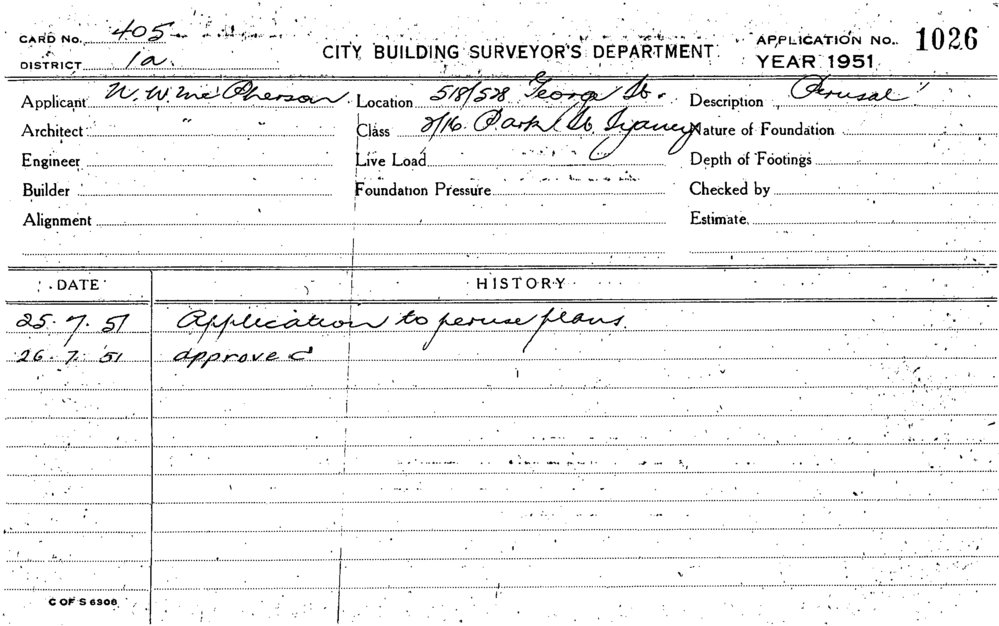 CARD No. 405
CITY BUILDING SURVEYOR'S DEPARTMENT
APPLICATION No. 1026
DISTRICT 1a.
YEAR 1951
Applicant W. W. McPherson Location 518/528 George St. Description Perusal
Architect " " Class 2/16. Park St Sydney Nature of Foundation
Engineer Live Load Depth of Footings
Builder Foundation Pressure Checked by
Alignment Estimate
DATE HISTORY
25. 7. 51 Application to peruse plans.
26. 7. 51 approved
C OF S 6306